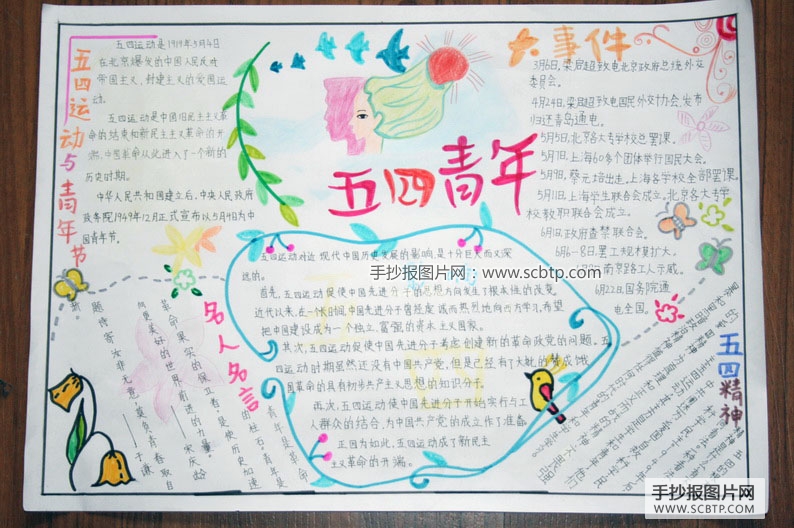 五四运动与青年节
五四运动是1919年5月4日
在北京爆发的中国人民反对
帝国主义、封建主义的爱国运
动。
五四运动是中国旧民主主义革
命的结束和新民主主义革命的开
端,中国革命从此进入了一个新的
历史时期。
中华人民共和国建立后,中央人民政府
政务院1949年12月正式宣布以5月4日为中
国青年节。
五四青年
大事件
3月6日,梁启超致电北京政府总统外交
委员会。
4月24日,梁启超致电国民外交协会,发布
归还青岛通电。
5月5日,北京各大专学校总罢课。
5月7日,上海60多个团体举行国民大会。
5月9日,蔡元培出走。上海各学校全部罢课。
5月11日,上海学生联合会成立。北京各大专学
校教职联合会成立。
6月1日,政府查禁联合会。
6月6-8日,罢工规模扩大。
南京路工人示威。
6月22日,国务院通
电全国。
五四运动对近现代中国历史发展的影响,是十分巨大而又深
远的。
手抄报图片网:www.scbtp.com
首先,五四运动促使中国先进分子的思想方向发生了根本性的改变。
近代以来,在一个长时间,中国先进分子曾经虔诚而热烈地向西方学习,希望
把中国建设成为一个独立、富强的资本主义国家。
其次,五四运动促使中国先进分子考虑创建新的革命政党的问题。五
四运动时期虽然还没有中国共产党,但是已经有了大批的赞成俄
国革命的具有初步共产主义思想的知识分子。
再次,五四运动使中国先进分子开始实行与工
人群众的结合,为中国共产党的成立作了准备。
正因为如此,五四运动成了新民主
主义革命的开端。
名人名言
青年是革命
的柱石。青年是
革命果实的保卫者,是使历史加速
向更美好的世界前进的力量。
——宋庆龄
题诗寄汝非无意,莫负青春取自
惭。
——于谦
五四精神
手抄报图片网
WWW.SCBTP.COM